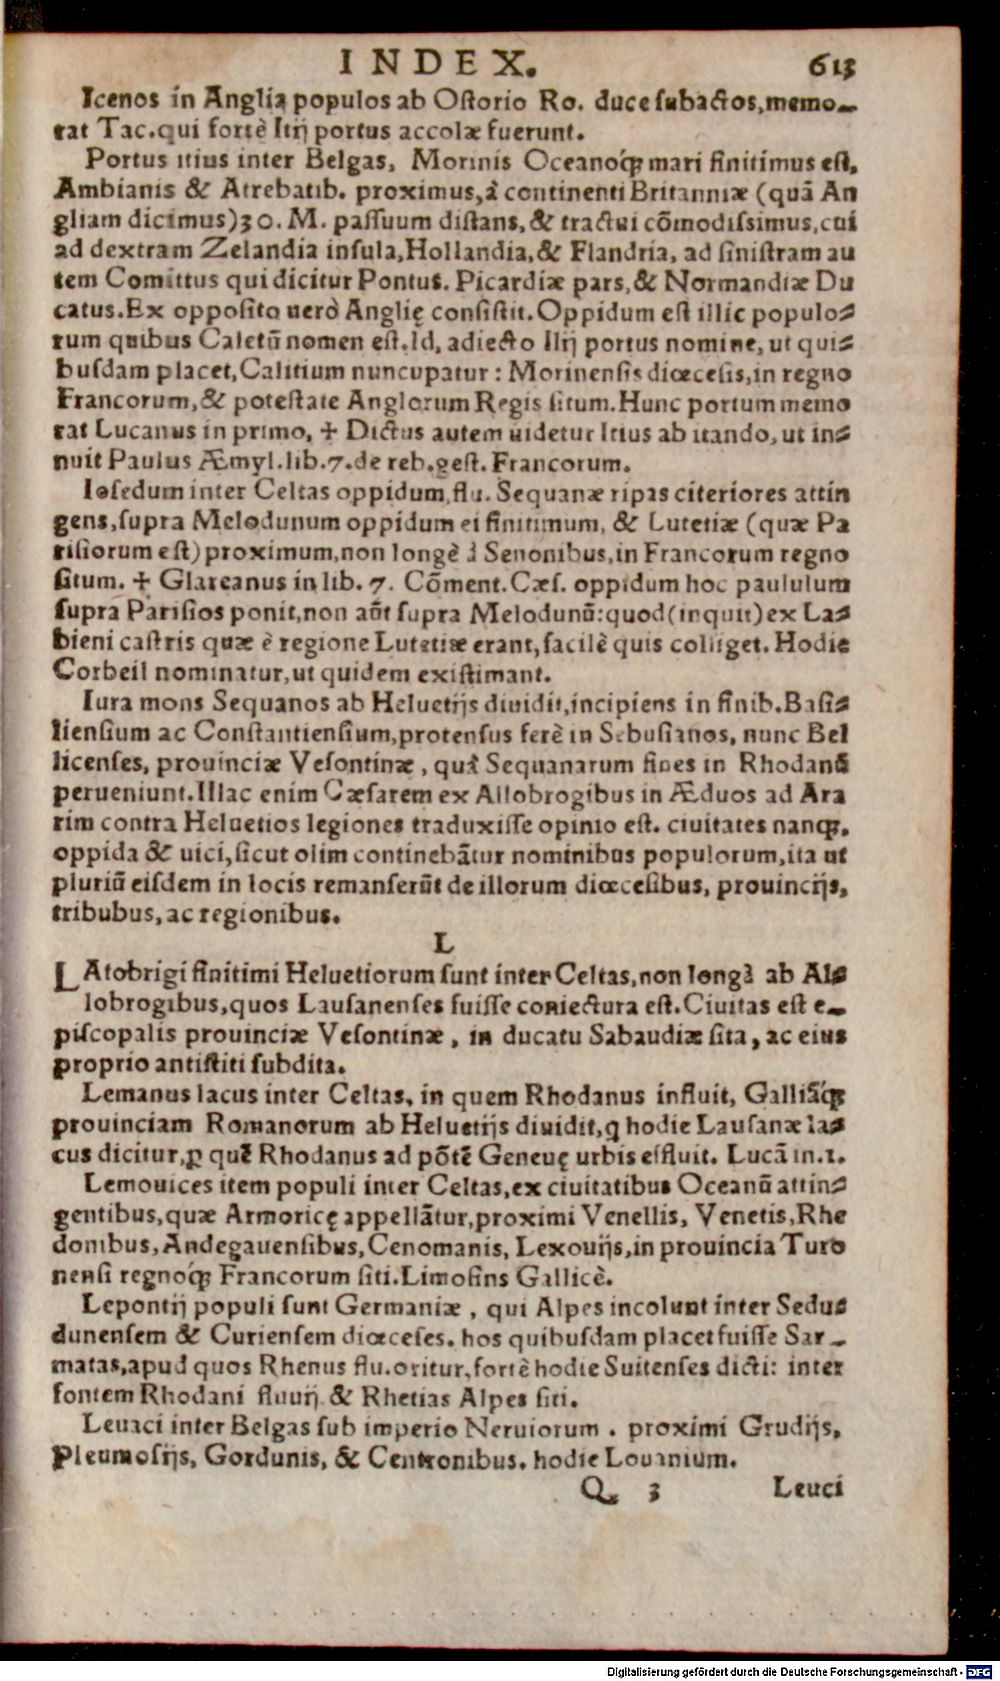 INDEX. 613
Icenos in Anglia populos ab Ostorio Ro. duce subactos, memo-
rat Tac. qui fortè Itij portus accolæ fuerunt.
Portus itius inter Belgas, Morinis Oceanoq́; mari finitimus est,
Ambianis & Atrebatib. proximus, à continenti Britanniæ (quā An
gliam dicimus) 30. M. passuum distans, & tractui cōmodissimus, cui
ad dextram Zelandia insula, Hollandia, & Flandria, ad sinistram au
tem Comittus qui dicitur Pontus. Picardiæ pars, & Normandiæ Du
catus. Ex opposito uerò Anglię consistit. Oppidum est illic populo-
rum quibus Caletū nomen est. Id, adiecto Itij portus nomine, ut qui-
busdam placet, Calitium nuncupatur: Morinensis diœcesis, in regno
Francorum, & potestate Anglorum Regis situm. Hunc portum memo
rat Lucanus in primo, ✢ Dictus autem uidetur Itius ab itando, ut in-
nuit Paulus Æmyl. lib. 7. de reb. gest. Francorum.
Iosedum inter Celtas oppidum, flu. Sequanæ ripas citeriores attin
gens, supra Melodunum oppidum ei finitimum, & Lutetiæ (quæ Pa
risiorum est) proximum, non longè à Senonibus, in Francorum regno
situm. ✢ Glareanus in lib. 7. Cōment. Cæs. oppidum hoc paululum
supra Parisios ponit, non aūt supra Melodunū: quod (inquit) ex La-
bieni castris quæ è regione Lutetiæ erant, facilè quis colliget. Hodie
Corbeil nominatur, ut quidem existimant.
Iura mons Sequanos ab Heluetijs diuidit, incipiens in finib. Basi-
liensium ac Constantiensium, protensus ferè in Sebusianos, nunc Bel
licenses, prouinciæ Vesontinæ, quà Sequanarum fines in Rhodanū
perueniunt. Illac enim Cæsarem ex Allobrogibus in Æduos ad Ara
rim contra Heluetios legiones traduxisse opinio est. ciuitates nanq;,
oppida & uici, sicut olim continebātur nominibus populorum, ita ut
pluriū eisdem in locis remanserūt de illorum diœcesibus, prouincijs,
tribubus, ac regionibus.
L
LAtobrigi finitimi Heluetiorum sunt inter Celtas, non longà ab Al-
lobrogibus, quos Lausanenses fuisse coniectura est. Ciuitas est e-
piscopalis prouinciæ Vesontinæ, in ducatu Sabaudiæ sita, ac eius
proprio antistiti subdita.
Lemanus lacus inter Celtas, in quem Rhodanus influit, Galliāq́;
prouinciam Romanorum ab Heluetijs diuidit, q hodie Lausanæ la-
cus dicitur, ꝑ quē Rhodanus ad pōtē Geneuę urbis effluit. Lucā in. 1.
Lemouices item populi inter Celtas, ex ciuitatibus Oceanū attin-
gentibus, quæ Armoricę appellātur, proximi Venellis, Venetis, Rhe
donibus, Andegauensibus, Cenomanis, Lexouijs, in prouincia Turo
nensi regnoq́; Francorum siti. Limosins Gallicè.
Lepontij populi sunt Germaniæ, qui Alpes incolunt inter Sedu-
dunensem & Curiensem diœceses. hos quibusdam placet fuisse Sar-
matas, apud quos Rhenus flu. oritur, fortè hodie Suitenses dicti: inter
fontem Rhodani fluuij & Rhetias Alpes siti.
Leuaci inter Belgas sub imperio Neruiorum. proximi Grudijs,
Pleumosijs, Gordunis, & Centronibus. hodie Louanium.
Q 3 Leuci
Digitalisierung gefördert durch die Deutsche Forschungsgemeinschaft - DFG